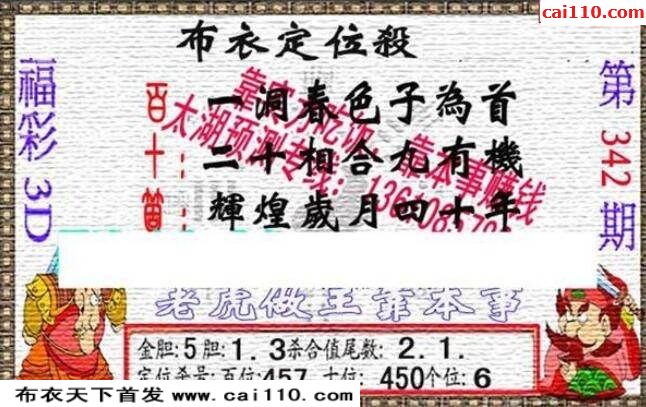 cai110.com
布衣定位殺
福彩3D
第342期
百十
一洞春色子為首
二十相合九有機
輝煌歲月四十年
靠实力吃饭 靠本事赚钱
太湖预测专线：
老虎做王靠本事
金胆:5胆:1.3杀合值尾数:2.1.
定位杀号:百位:457 十位:450个位:6
布衣天下首发 www.cai110.com